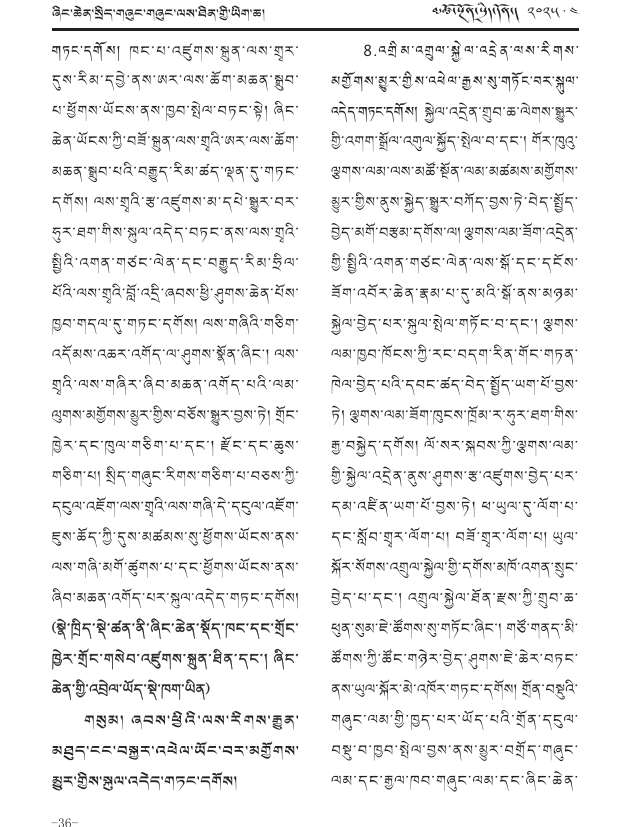 ཞིང་ཆེན་སྲིད་གཞུང་གཞུང་ལས་ཐིན་གྱི་ཡིག་ཆ།
༢༠༢༥ · ༤
གཏང་དགོས། ཁང་པ་འཛུགས་སྐྲུན་ལས་གྲྭར་
དུས་རིམ་དབྱེ་ནས་ཨར་ལས་ཆོག་མཆན་སྒྲུབ་
པ་ཕྱོགས་ཡོངས་ནས་ཁྱབ་སྤེལ་བཏང་སྟེ། ཞིང་
ཆེན་ཡོངས་ཀྱི་བཟོ་སྐྲུན་ལས་གྲྭའི་ཨར་ལས་ཆོག་
མཆན་སྒྲུབ་པའི་བརྒྱུད་རིམ་ཚད་ལྡན་དུ་གཏང་
དགོས། ལས་གྲྭའི་རྩ་འཛུགས་མ་དཔེ་སྒྱུར་བར་
ཧུར་ཐག་གིས་སྐུལ་འདེད་བཏང་ནས་ལས་གྲྭའི་
སྤྱིའི་འགན་གཙང་ལེན་དང་བརྒྱུད་རིམ་ཧྲིལ་
པོའི་ལས་གྲྭའི་བློ་འདྲི་ཞབས་ཕྱི་ཤུགས་ཆེན་པོས་
ཁྱབ་གདལ་དུ་གཏང་དགོས། ལས་གཞིའི་གཅིག་
འདོམས་འཆར་འགོད་ལ་ཤུགས་སྣོན་ཞིང་། ལས་
གྲྭའི་ལས་གཞིར་ཞིབ་མཆན་འགོད་པའི་ལམ་
ལུགས་མགྱོགས་མྱུར་གྱིས་བཅོས་སྒྱུར་བྱས་ཏེ། གྲོང་
ཁྱེར་དང་ཁུལ་གཅིག་པ་དང་། རྫོང་དང་ཆུས་
གཅིག་པ། སྲིད་གཞུང་རིགས་གཅིག་པ་བཅས་ཀྱི་
དངུལ་འཇོག་ལས་གྲྭའི་ལས་གཞི་དེ་དངུལ་འཇོག་
ཇུས་ཆོད་ཀྱི་དུས་མཚམས་སུ་ཕྱོགས་ཡོངས་ནས་
ལས་གཞི་མགོ་ཚུགས་པ་དང་ཕྱོགས་ཡོངས་ནས་
ཞིབ་མཆན་འགོད་པར་སྐུལ་འདེད་གཏང་དགོས།
(སྣེ་ཁྲིད་སྡེ་ཚན་ནི་ཞིང་ཆེན་སྡོད་ཁང་དང་གྲོང་
ཁྱེར་གྲོང་གསེབ་འཛུགས་སྐྲུན་ཐིན་དང་། ཞིང་
ཆེན་གྱི་འབྲེལ་ཡོད་སྡེ་ཁག་ཡིན)
གསུམ། ཞབས་ཕྱིའི་ལས་རིགས་རྒྱུན་
མཐུད་ངང་བསྐྱར་འཕེལ་ཡོང་བར་མགྱོགས་
མྱུར་གྱིས་སྐུལ་འདེད་གཏང་དགོས།
8.འགྲིམ་འགྲུལ་སྐྱེལ་འདྲེན་ལས་རིགས་
མགྱོགས་མྱུར་གྱིས་འཕེལ་རྒྱས་སུ་གཏོང་བར་སྐུལ་
འདེད་གཏང་དགོས། སྐྱེལ་འདྲེན་གྲུབ་ཆ་ལེགས་སྒྱུར་
གྱི་འགག་སྒྲོལ་འགུལ་སྐྱོད་སྤེལ་བ་དང་། གོར་ཁུའུ་
ལྕགས་ལམ་ལས་མཚོ་སྔོན་ལམ་མཚམས་མགྱོགས་
མྱུར་གྱིས་ནུས་སྐྱེད་སྒྱུར་བཀོད་བྱས་ཏེ་བེད་སྤྱོད་
བྱེད་མགོ་བརྩམ་དགོས་ལ། ལྕགས་ལམ་ཟོག་འདྲེན་
གྱི་སྤྱིའི་འགན་གཙང་ལེན་ལས་སྒོ་དང་དངོས་
ཟོག་འབོར་ཆེན་རྣམ་པ་དུ་མའི་སྒོ་ནས་མཉམ་
སྐྱེལ་བྱེད་པར་སྐུལ་སྤེལ་གཏོང་བ་དང་། ལྕགས་
ལམ་ཁྱབ་ཁོངས་ཀྱི་རང་བདག་རིན་གོང་གཏན་
ཁེལ་བྱེད་པའི་དབང་ཚད་བེད་སྤྱོད་ཡག་པོ་བྱས་
ཏེ། ལྕགས་ལམ་ཟོག་ཁུངས་ཁྲོམ་ར་ཧུར་ཐག་གིས་
རྒྱ་བསྐྱེད་དགོས། ལོ་སར་སྐབས་ཀྱི་ལྕགས་ལམ་
གྱི་སྐྱེལ་འདྲེན་ནུས་ཤུགས་རྩ་འཛུགས་བྱེད་པར་
དམ་འཛིན་ཡག་པོ་བྱས་ཏེ། ཕ་ཡུལ་དུ་ལོག་པ་
དང་སློབ་གྲྭར་ལོག་པ། བཟོ་གྲྭར་ལོག་པ། ཡུལ་
སྐོར་སོགས་འགྲུལ་སྐྱེལ་གྱི་དགོས་མཁོ་འགན་སྲུང་
བྱེད་པ་དང་། འགྲུལ་སྐྱེལ་ཐོན་རྫས་ཀྱི་གྲུབ་ཆ་
ཕུན་སུམ་ཇེ་ཚོགས་སུ་གཏོང་ཞིང་། གཙོ་གནད་མི་
ཚོགས་ཀྱི་ཚོང་གཉེར་བྱེད་ཤུགས་ཇེ་ཆེར་བཏང་
ནས་ཡུལ་སྐོར་མེ་འཁོར་གཏང་དགོས། གྲོན་བསྡུའི་
གཞུང་ལམ་གྱི་ཁྱད་པར་ཡོད་པའི་གྲོན་དངུལ་
བསྡུ་བ་ཁྱབ་སྤེལ་བྱས་ནས་མྱུར་བགྲོད་གཞུང་
ལམ་དང་རྒྱལ་ཁབ་གཞུང་ལམ་དང་ཞིང་ཆེན་
-36-